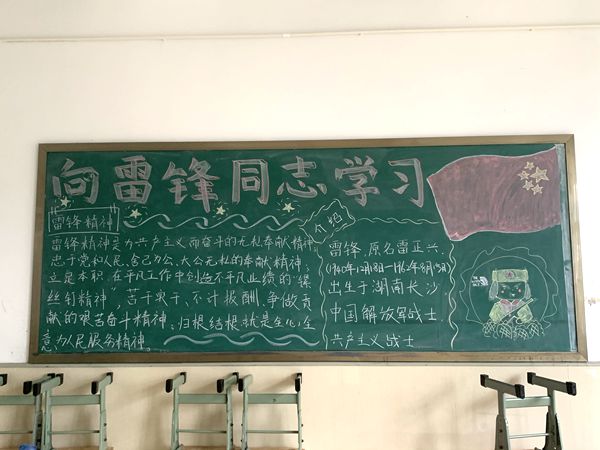 向雷锋同志学习
雷锋精神
雷锋精神是为共产主义而奋斗的无私奉献精神。
忠于党和人民、舍己为公、大公无私的奉献精神；
立足本职、在平凡工作中创造不平凡业绩的“螺
丝钉精神，苦干实干、不计报酬、争做贡
献的艰苦奋斗精神，归根结根就是全心全
意为人民服务精神。
介绍
雷锋，原名雷正兴，
1940年12月18日-1962年8月15日
出生于湖南长沙
中国解放军战士
共产主义战士